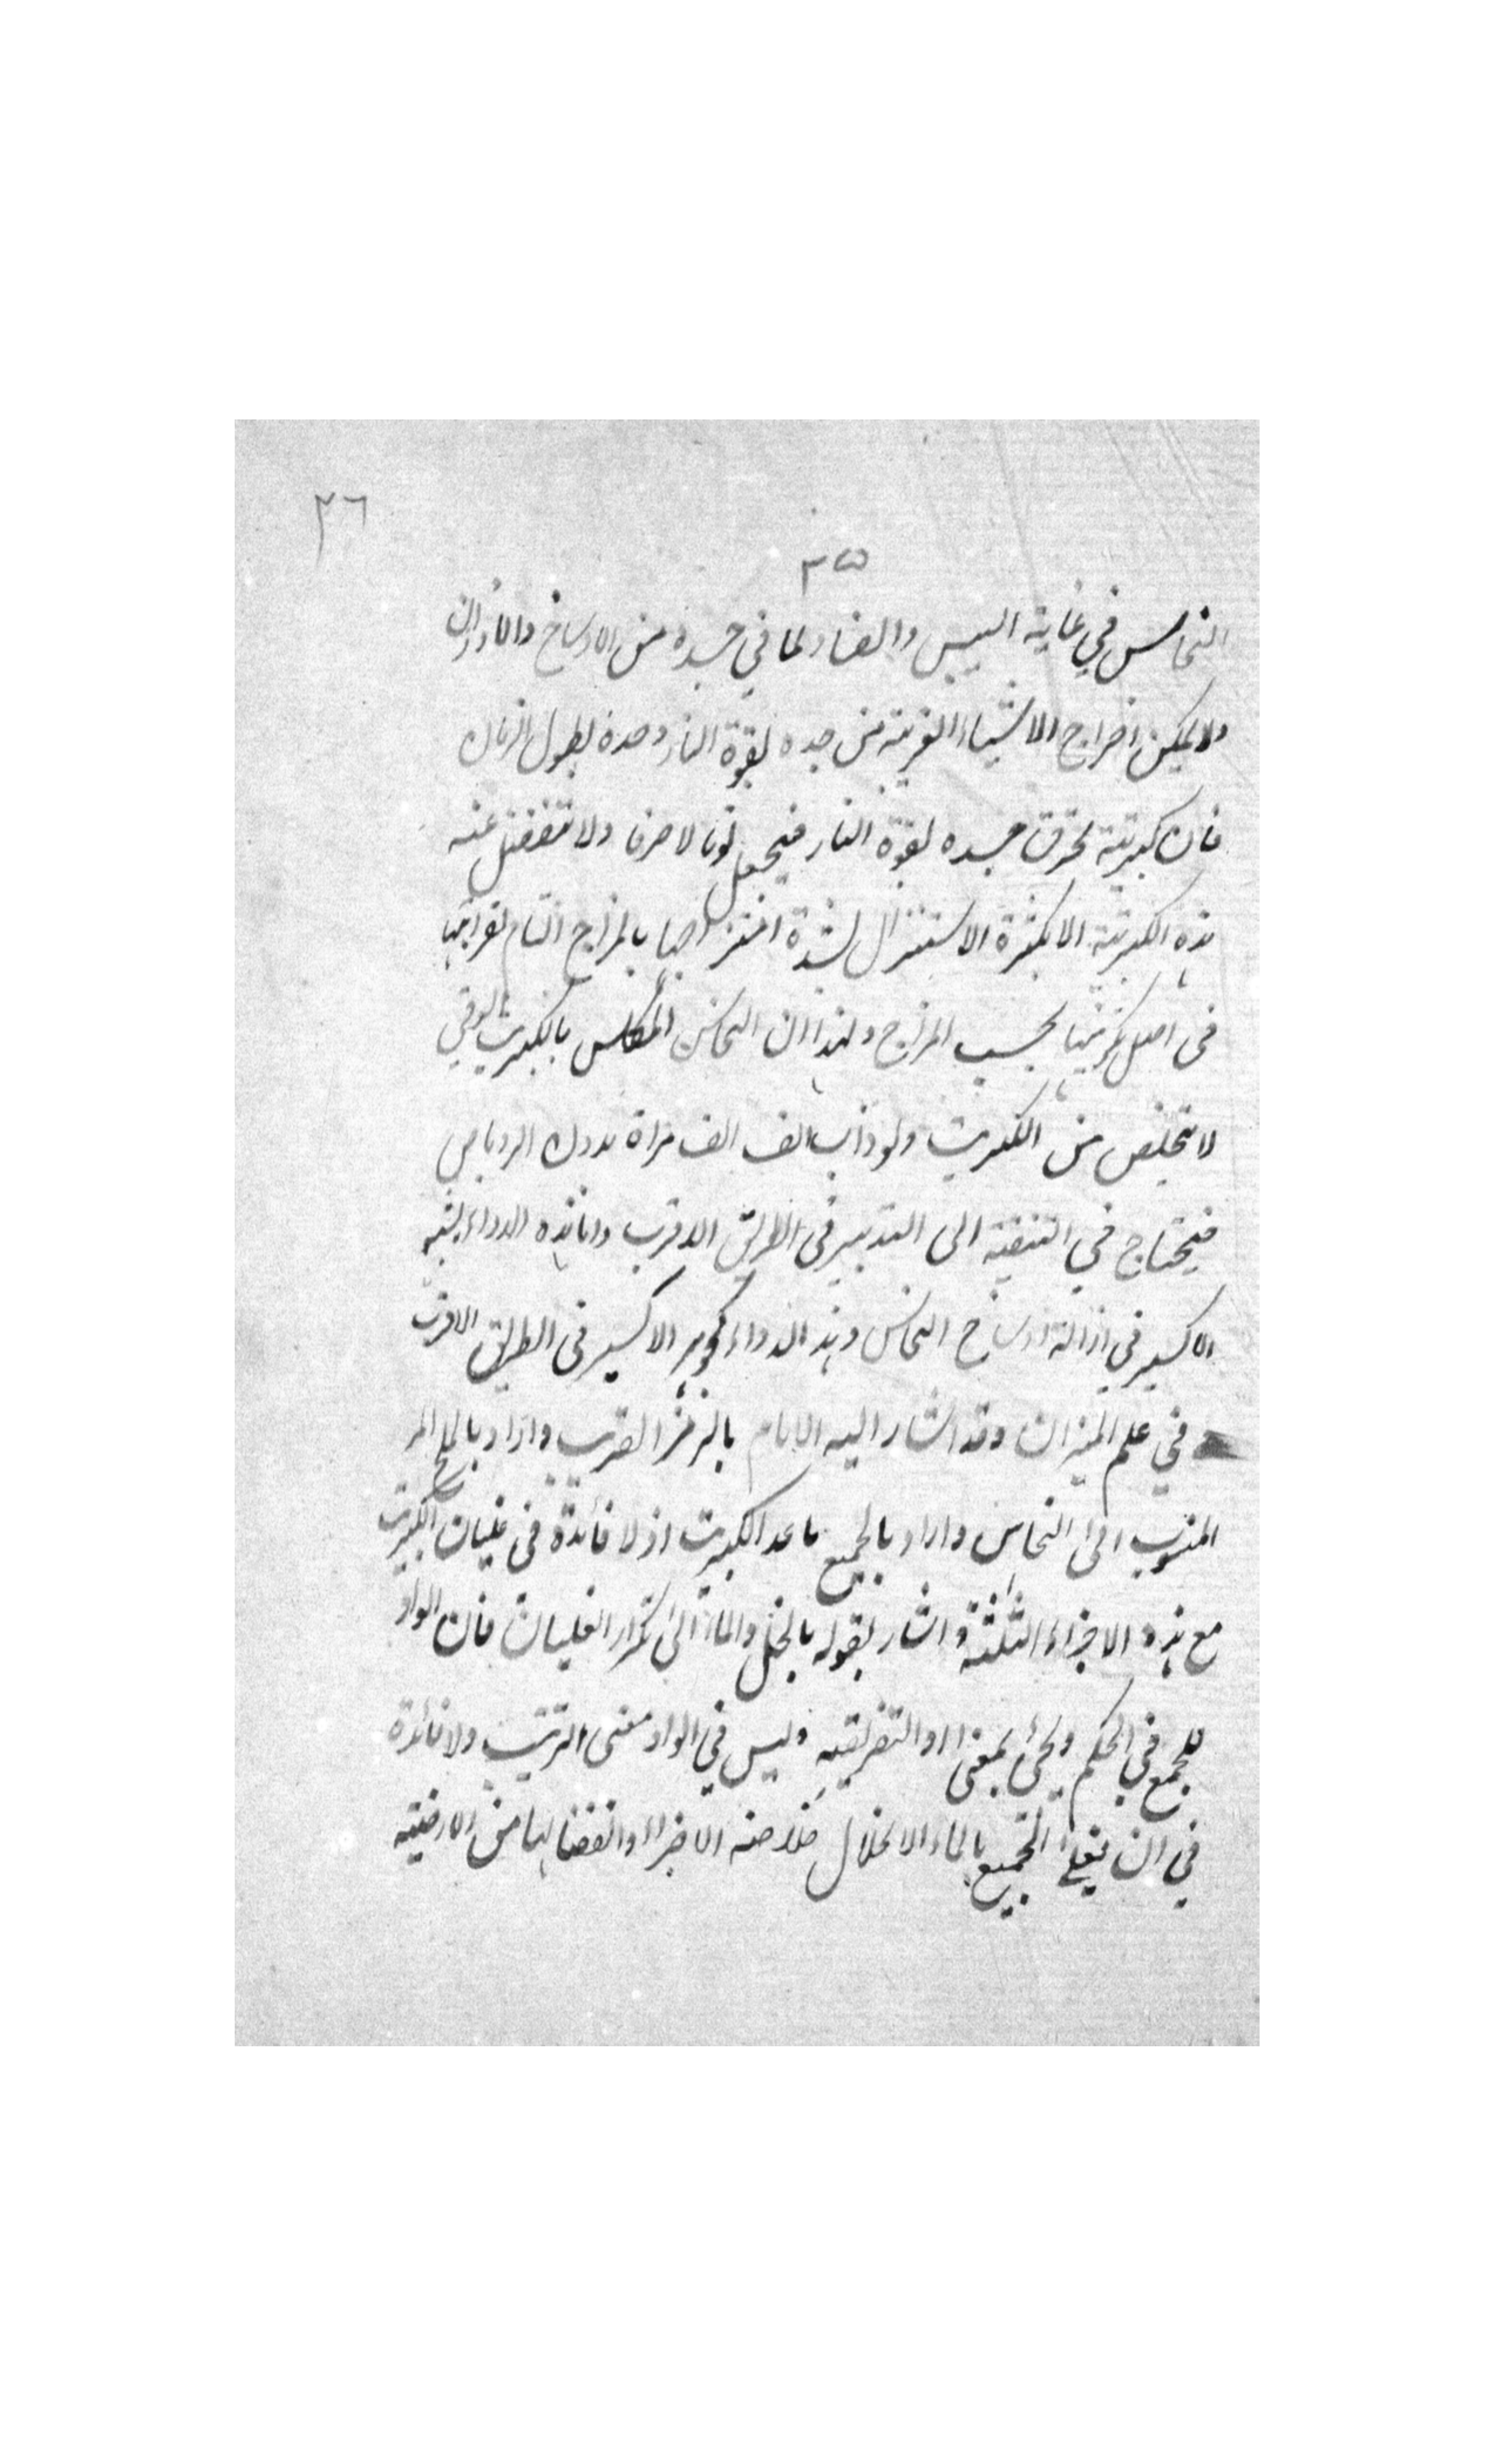 ٣٦
٣٥
النحاس في غاية اليبس والفساد لما في جسده من الاوساخ والادران
ولا يمكن اخراج الاشياء الغريبة من جسده بقوة النار وحده بطول الزمان
فان كبريتية تحرق جسده بقوة النار فيجعل توبالا صرفا ولا تنفصل عنه
هذه الكبريتية الا بكثرة الاستنزال لشدة امتزاجها بالمزاج التام لقرابتها
في اصل تكوينها بحسب المزاج ولهذا ان النحاس المكلس بالكبريت
لا يتخلص من الكبريت ولو ذاب الف الف مرة بدون الروباص
فيحتاج في التنقية الى التدبير في الطريق الاقرب وانما هذه الدواء يشبه
الاكسير في ازالة اوساخ النحاس وهذه الدواء كجوهر الاكسير في الطريق الاقرب
في علم الميزان وقد اشار اليه الامام بالرمز القريب واراد بالملح المر
المنسوب الى النحاس واراد بالجميع ما عدا الكبريت اذ لا فائدة في غليان الكبريت
مع هذه الاجزاء الثلثة واشار بقوله بالخل والماء الى تكرار الغليان فان الواو
للجمع في الحكم ويجئ بمعنى او التفريقيه وليس في الواو معنى الترتيب ولا فائدة
في ان يغلى الجميع بالماء الا انحلال خلاصة الاجزاء وانفصالها من الارضية